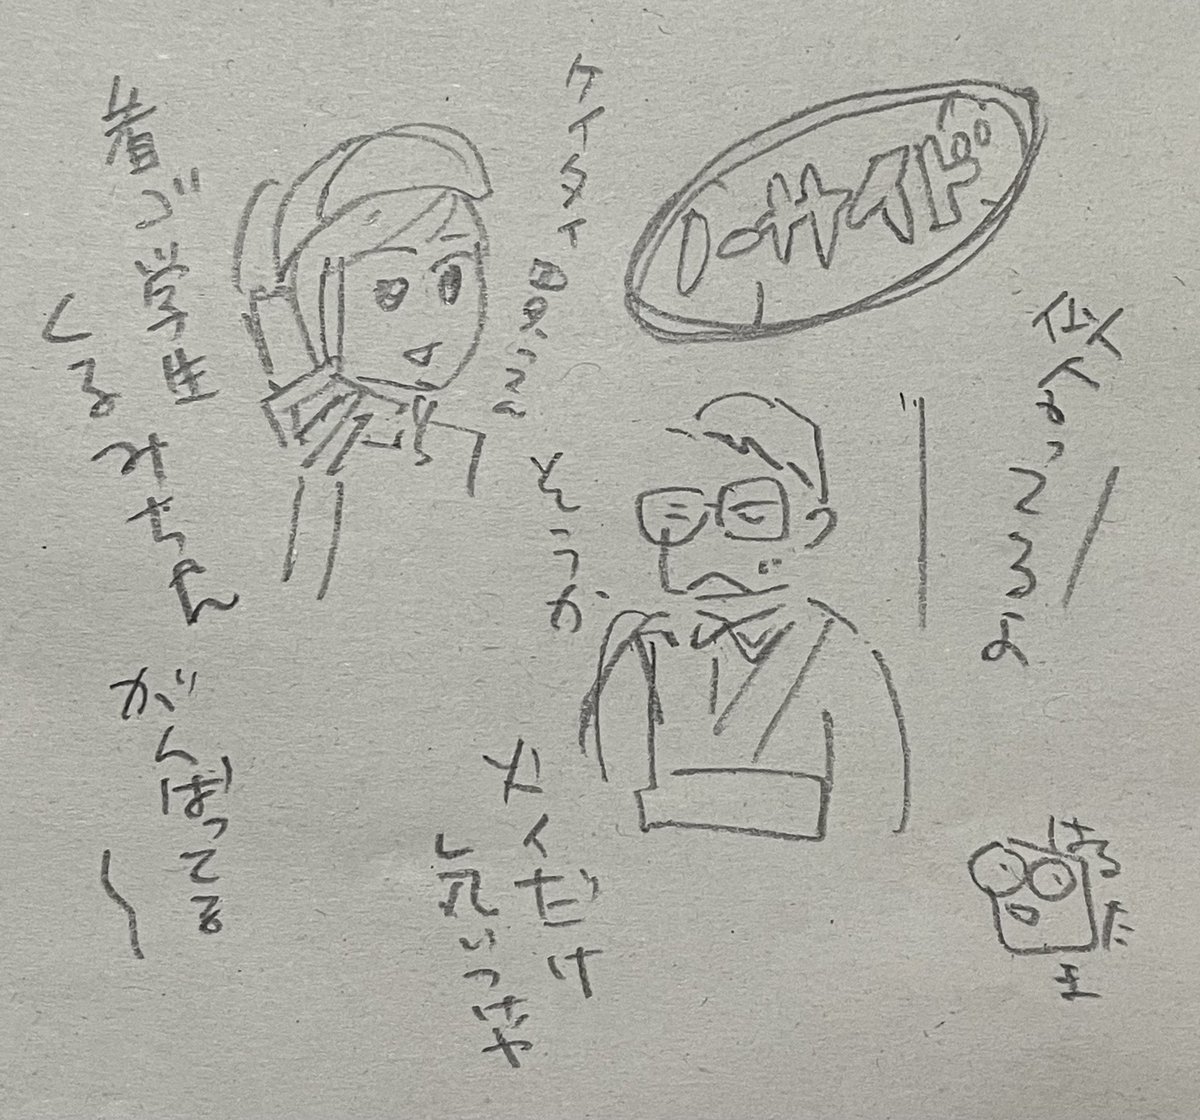 ローサイド
似合ってるよ
ケイタイ
そうか
火イだけ
気いつけや
着ゴ学生
くるみちゃん
がんばってる
はる
た
王